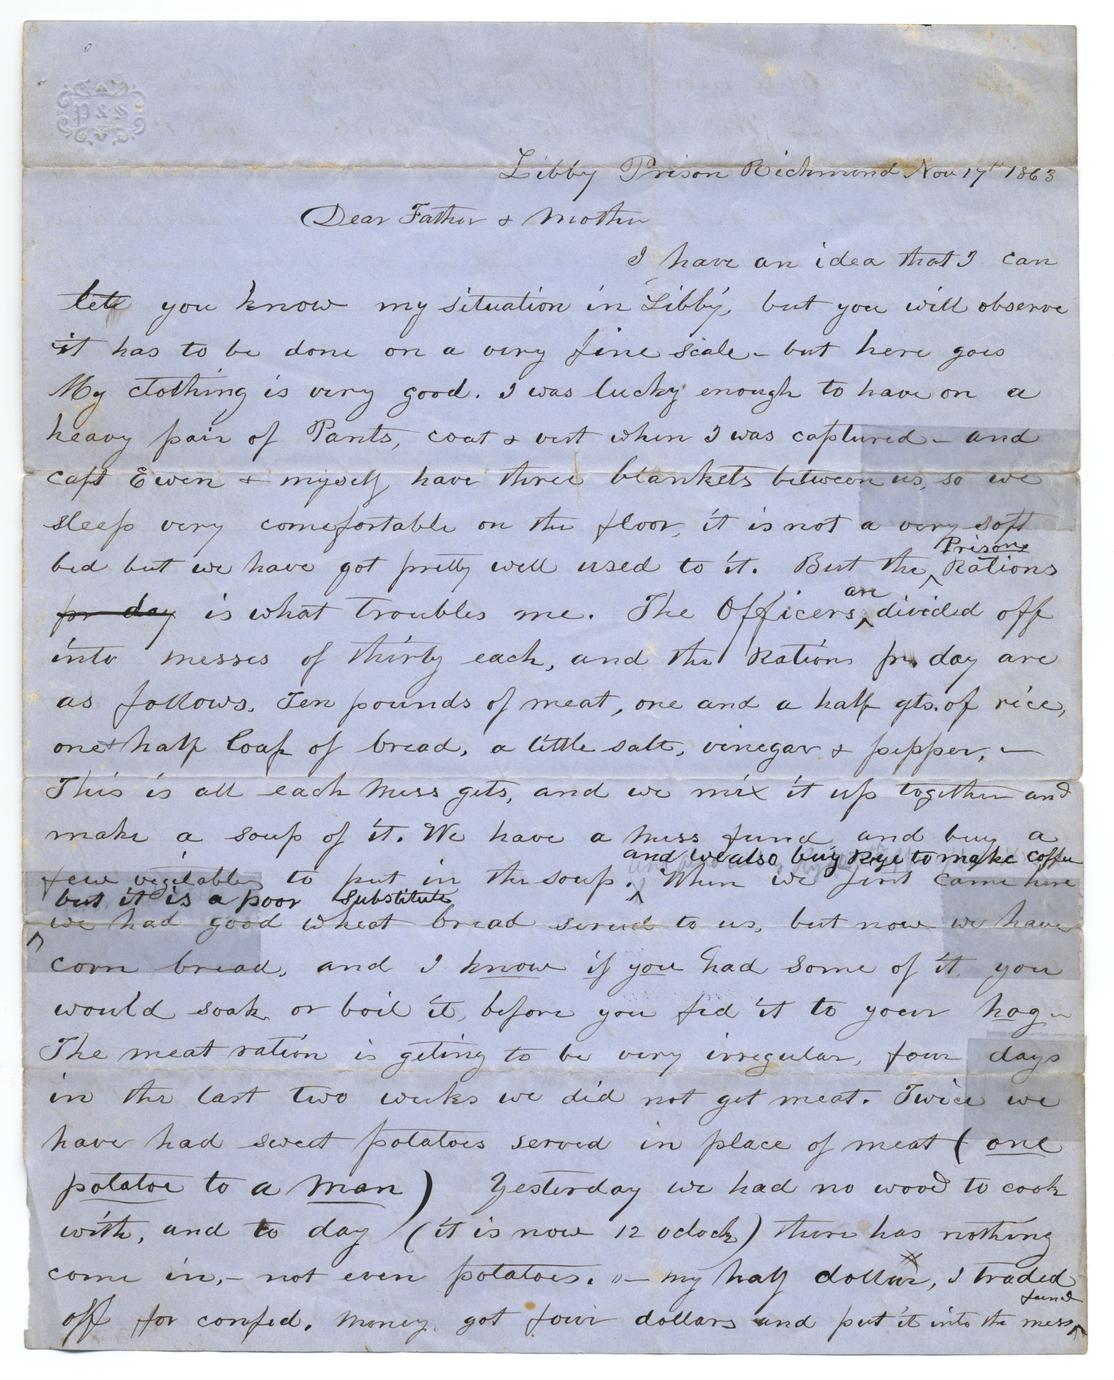 P & S
Libby Prison Richmond Nov 17th 1863
Dear Father & Mother
I have an idea that I can
let you know my situation in Libby, but you will observe
it has to be done on a very fine scale - but here goes
My clothing is very good. I was lucky enough to have on a
heavy pair of Pants, coat & vest when I was captured - and
capt Ewen & myself have three blankets between us, so we
sleep very comefortable on the floor, it is not a very soft
bed but we have got pretty well used to it. But the Prison Rations
pr day is what troubles me. The Officers are divided off
into messes of thirty each, and the Rations pr. day are
as follows. Ten pounds of meat, one and a half qts. of rice,
one & half loaf of bread, a little salt, vinegar & pepper, -
This is all each mess gets, and we mix it up together and
make a soup of it. We have a mess fund and buy a
few vegitables to put in the soup. and we also buy Rye to make coffee
but it is a poor substitute When we first came here
we had good wheat bread served to us, but now we have
corn bread, and I know if you had some of it you
would soak or boil it, before you fed it to your hog -
The meat ration is geting to be very irregular, four days
in the last two weeks we did not get meat. Twice we
have had sweet potatoes served in place of meat (one
potatoe to a man) Yesterday we had no wood to cook
with, and to day (it is now 12 oclock) there has nothing
come in, - not even potatoes. - my half dollar, I traded
off for confed. money. got four dollars and put it into the mess fund